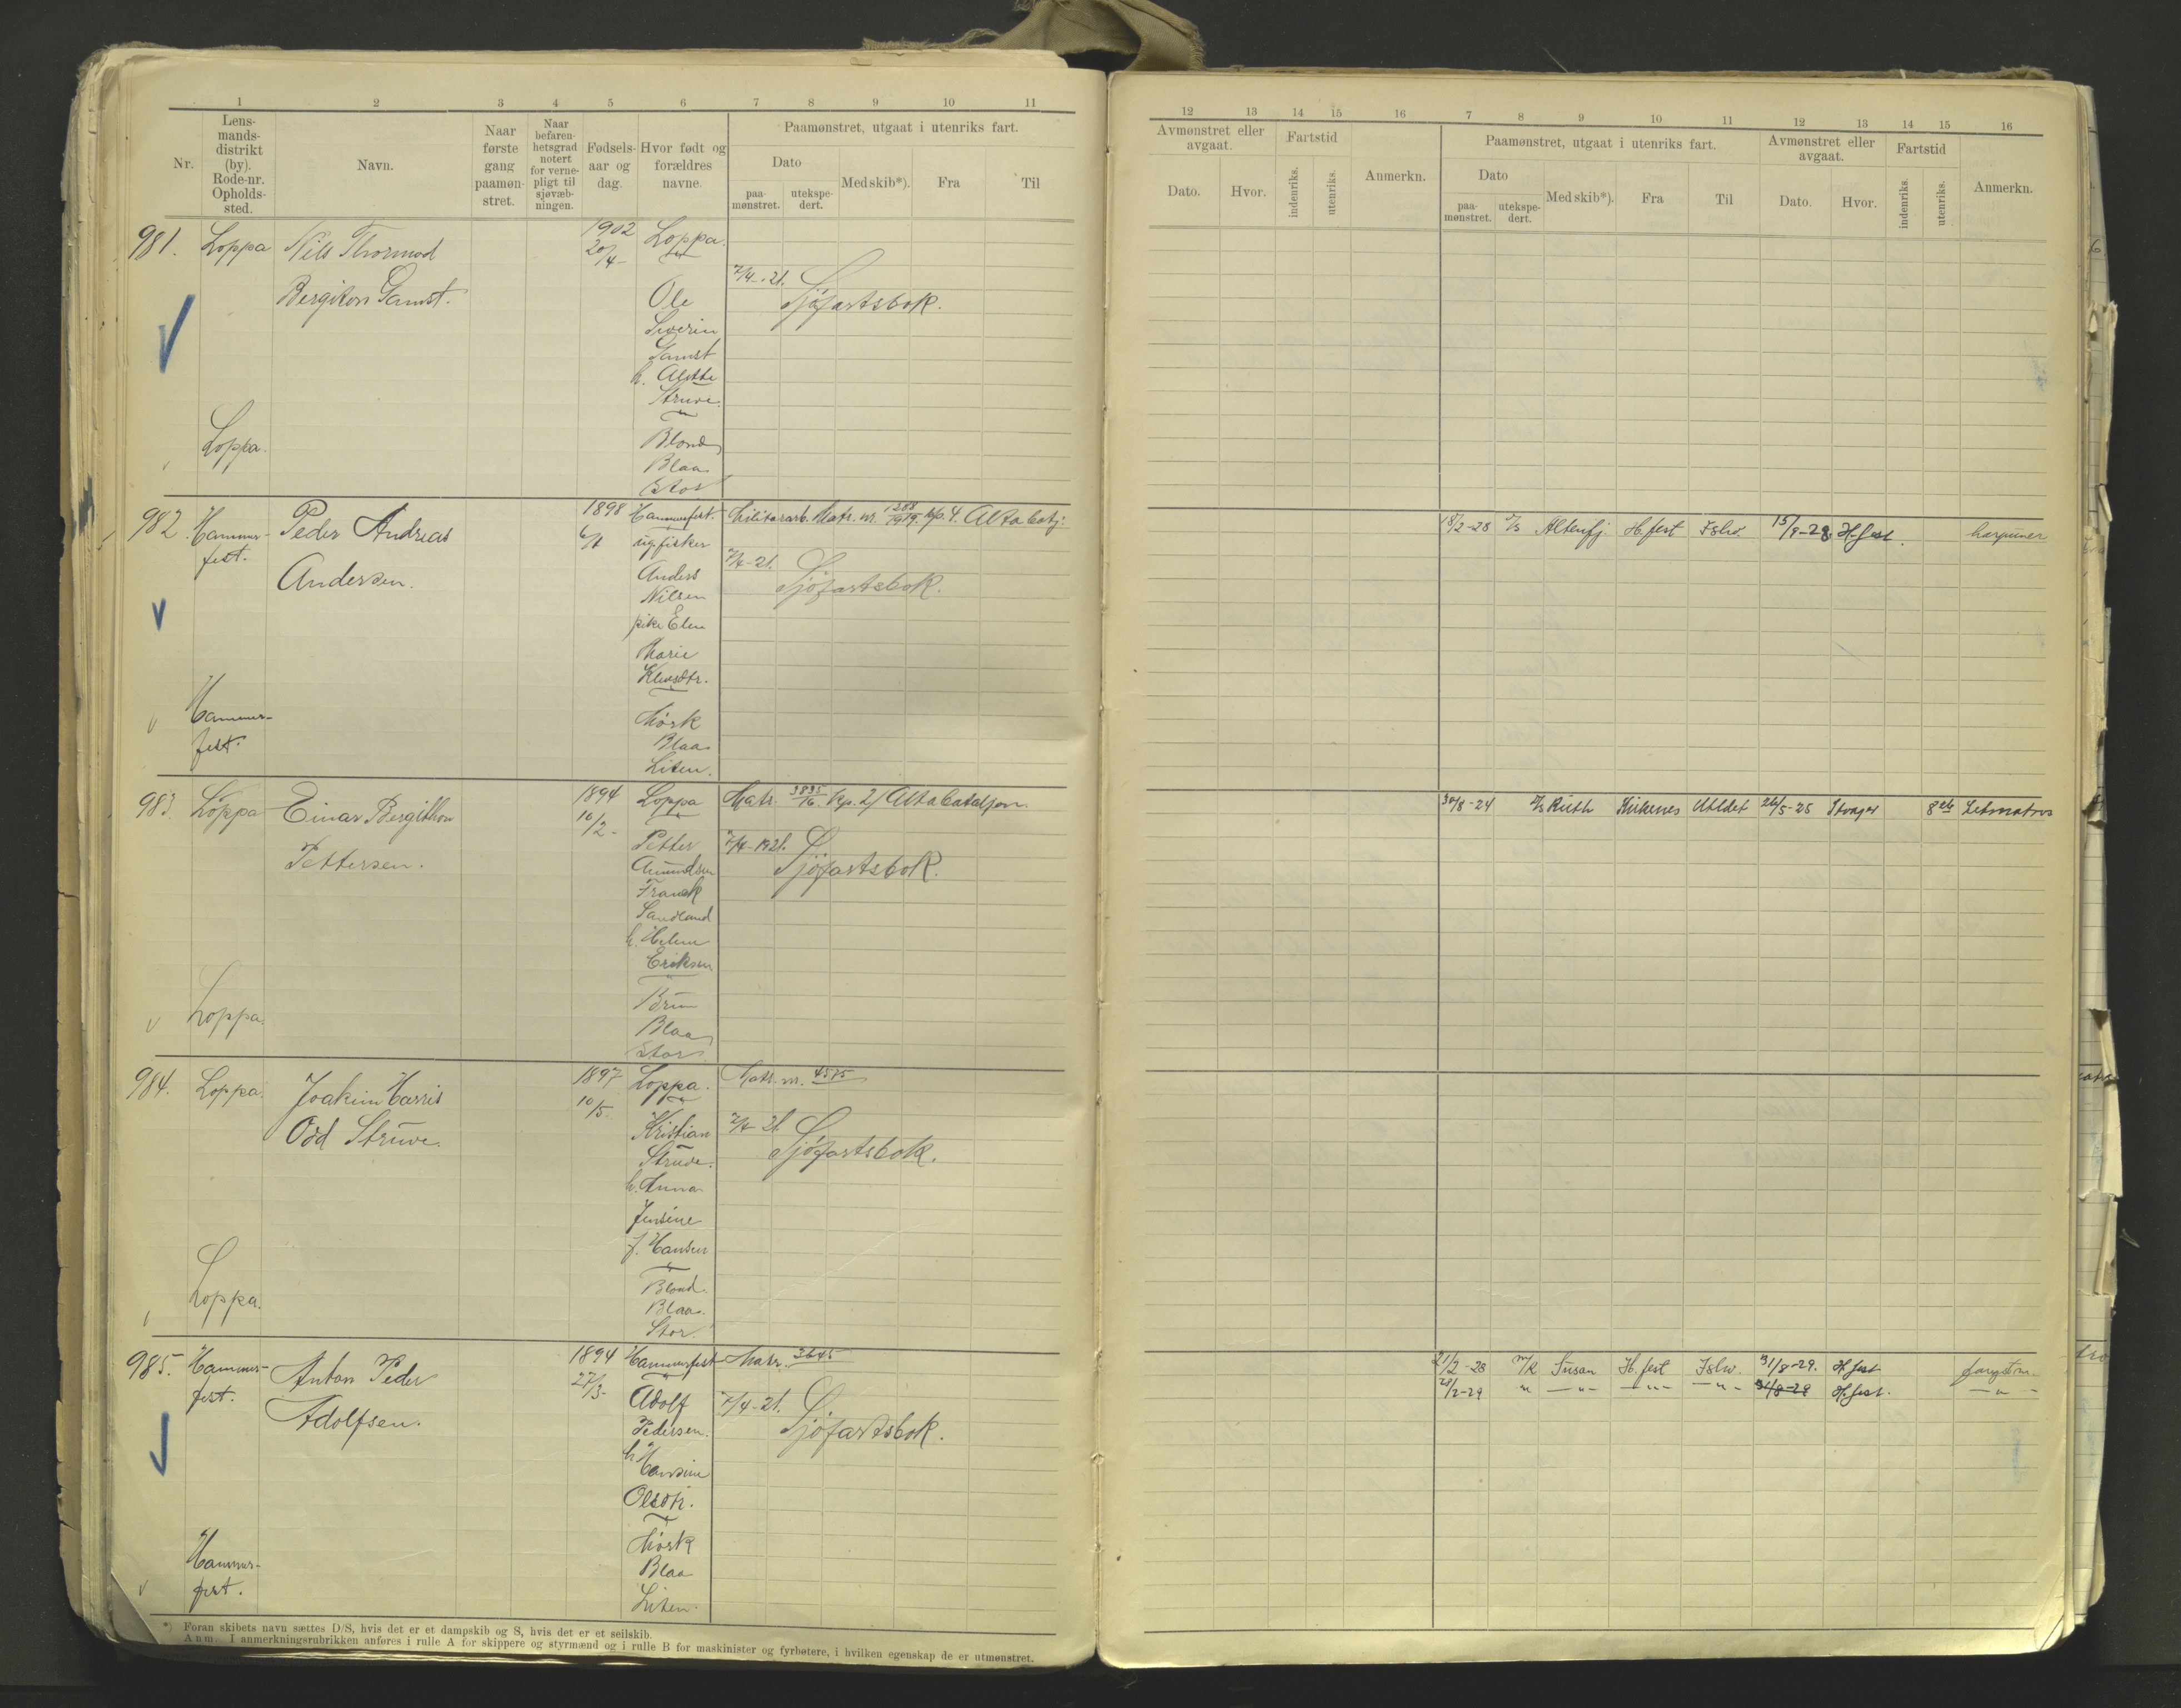 1 2 3 4 5 6 7 8 9 10 11
Nr.
Lens-
mands-
distrikt
(by).
Rode-nr.
Opholds-
sted.
Navn.
Naar
første
gang
paamøn-
stret.
Naar
befaren-
hetsgrad
notert
for verne-
pligt til
sjøvæb-
ningen.
Fødsels-
aar og
dag.
Hvor født og
forældres
navne.
Paamønstret, utgaat i utenriks fart.
Dato
paa-
mønstret.
utekspe-
dert.
Med skib*).
Fra
Til
981. Loppa Nils Thormod 1902 Loppa.
20/4-
Bergiton Gamst. Ole 7/4-21. Sjøfartsbok.
Severin
Gamst
h. Alette
Struve.
Loppa. Blond
Blaa
Stor
982. Hammer- Peder Andreas 1898 Hammerfest. Militærarb. Matr. nr. 1288/1919. kp. 4. Alta batj:
fest. 6/4 ugfisker
Andersen. Anders 7/4-21. Sjøfartsbok.
Nilsen
pike Elen
Marie
Klausdtr.
Hammer- Mørk
fest. Blaa
Liten.
983. Loppa Einar Bergithon 1894 Loppa Matr. 3835/16. kp. 2/ Alta bataljon
10/2-
Pettersen. Petter 7/4-1921. Sjøfartsbok.
Amundsen
Frank
Sandland
h. Helene
Eriksen
Loppa. Brun
Blaa
Stor.
984. Loppa. Joakim Harris 1897 Loppa. Matr. nr. 4575
10/5.
Odd Struve. Kristian 7/4-21. Sjøfartsbok.
Struve.
h. Anna
Jensine
f. Hansen
Loppa. Blond.
Blaa.
Stor.
985. Hammer- Anton Peder 1894 Hammerfest Matr. 3645
fest. 27/3-
Adolfsen. Adolf 7/4-21. Sjøfartsbok.
Pedersen.
h. Hansine
Olsdtr.
Mørk
Hammer- Blaa
fest. Liten.
*) Foran skibets navn sættes D/S, hvis det er et dampskib og S, hvis det er et seilskib.
Anm. I anmerkningsrubrikken anføres i rulle A for skippere og styrmænd og i rulle B for maskinister og fyrbøtere, i hvilken egenskap de er utmønstret.
12 13 14 15 16 7 8 9 10 11 12 13 14 15 16
Avmønstret eller
avgaat.
Dato.
Hvor.
Fartstid
indenriks.
utenriks.
Anmerkn.
Paamønstret, utgaat i utenriks fart.
Dato
paa-
mønstret.
utekspe-
dert.
Med skib*).
Fra
Til
Avmønstret eller
avgaat.
Dato.
Hvor.
Fartstid
indenriks.
utenriks.
Anmerkn.
18/2-28 Altenfj H.fest Ishv. 15/9-28 H.fest. harpuner
30/8-24 Ruth Kirkenes Utldet 26/5-25 Letmatros
21/2-28 m/k Susan H.fest Ishv. 31/8-29. H.fest fangstm.
28/2-29 " -"- -"- -"- 31/8-29 H.fest. -"-